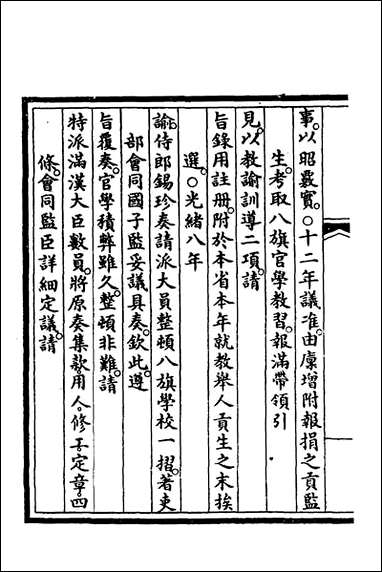 事。以昭覈實。○十二年議准。由廩增附報捐之貢監
生。考取八旗官學教習。報滿帶領引
見。以教諭訓導二項。請
旨錄用註冊。附於本省本年就教舉人貢生之末挨
選。○光緒八年
諭。侍郎錫珍奏請派大員整頓八旗學校一摺。著吏
部會同國子監妥議具奏。欽此。遵
旨覆奏。官學積弊雖久。整頓非難。請
特派滿漢大臣數員。將原奏集款。用人。修工。定章。四
條。會同監臣詳細定議。請